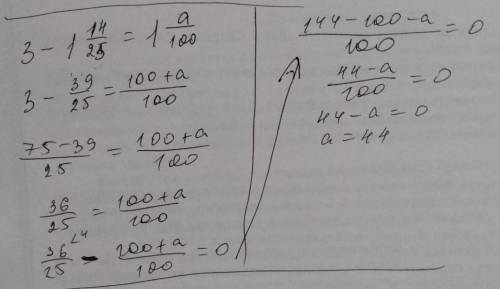 3 - 1 14/25 = 1 a/100
3 - 39/25 = (100+a)/100
(75-39)/25 = (100+a)/100
36/25 = (100+a)/100
36/25 ∠4 - (100+a)/100 = 0
(144-100-a)/100 = 0
(44-a)/100 = 0
44-a = 0
a = 44